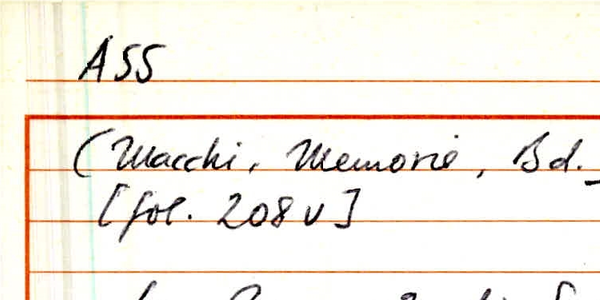 ASS
(Macchi, Memorie, Bd.
[fol. 208 v]